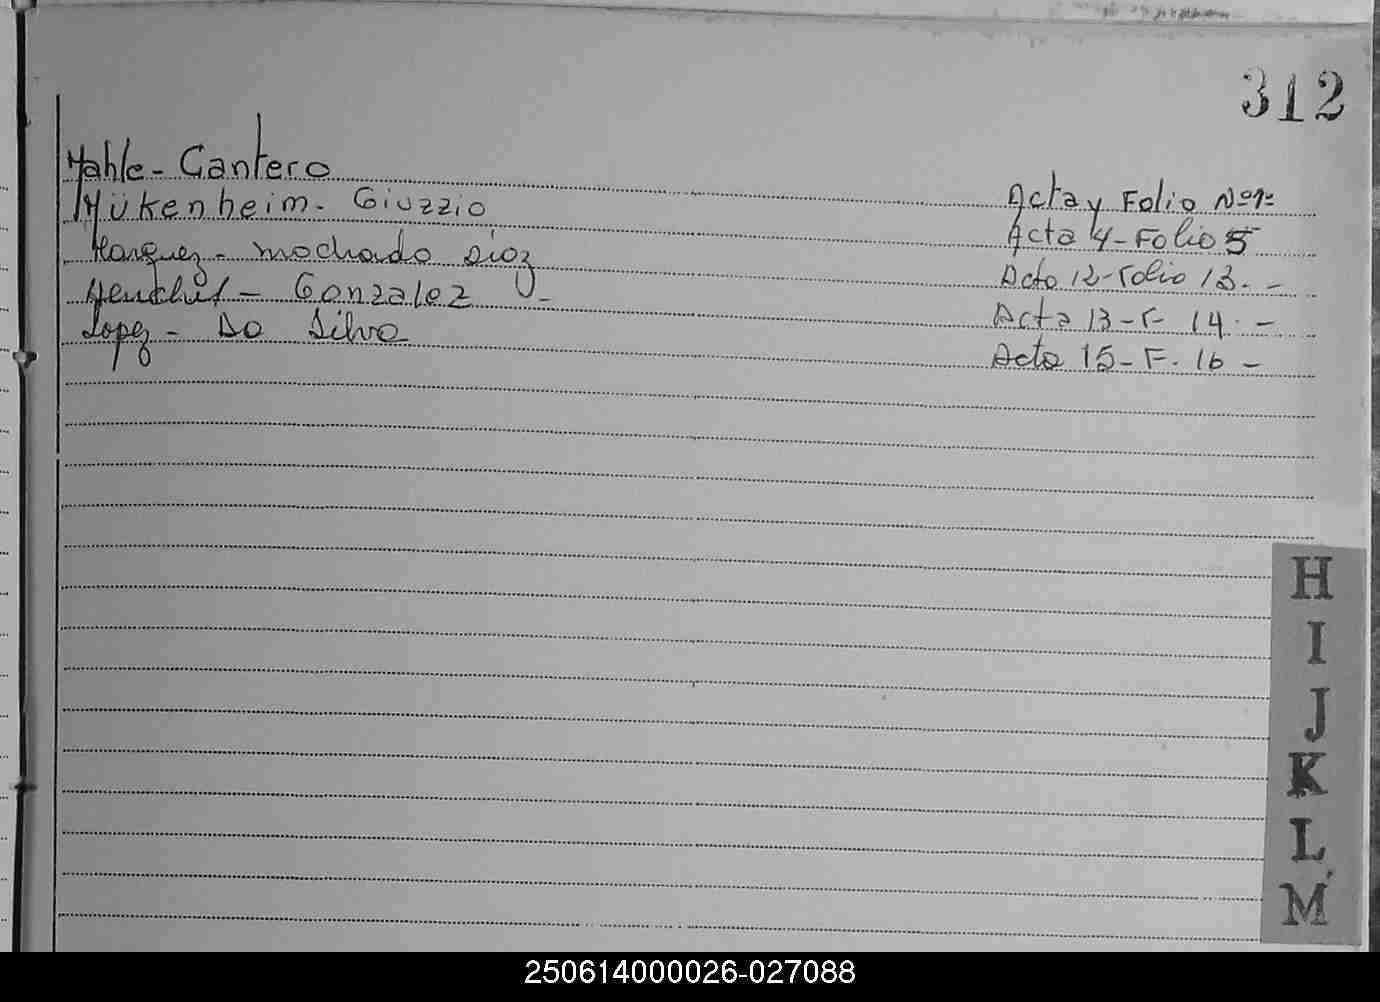 312
Mahle - Cantero Acta y Folio Nº 1=
Mükenheim - Giuzzio Acta 4 - Folio 5
Marquez - Machado Dioz Acta 12 - Folio 13. -
- Gonzalez - Acta 13 - F 14. -
Lopez - Da Silva Acta 15 - F. 16 -
H
I
J
K
L
M
250614000026-027088